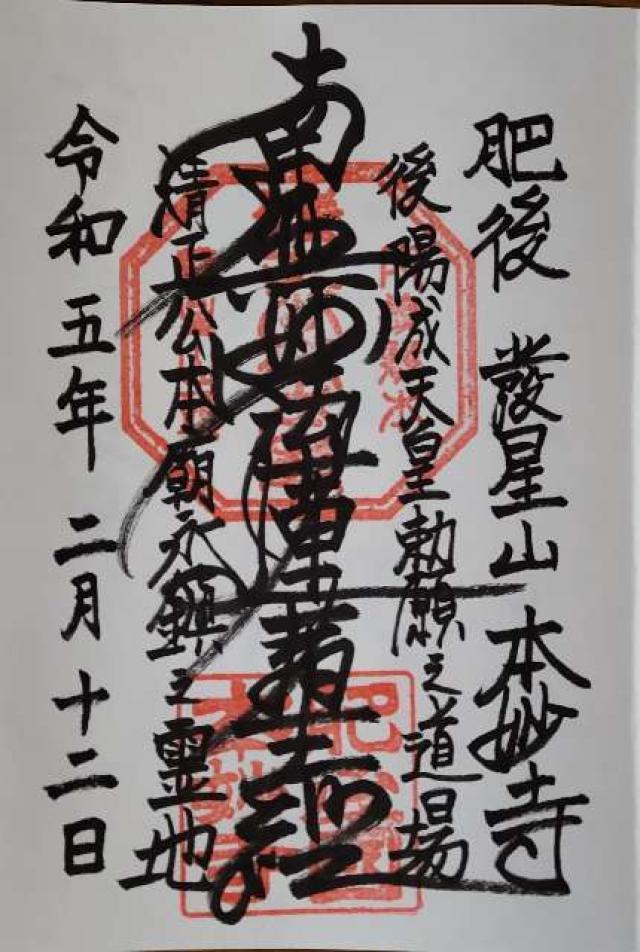 肥後 發星山 本妙寺
後陽成天皇勅願之道場
南無妙法蓮華経
清正公本廟永鎮之霊地
令和五年 二月十二日